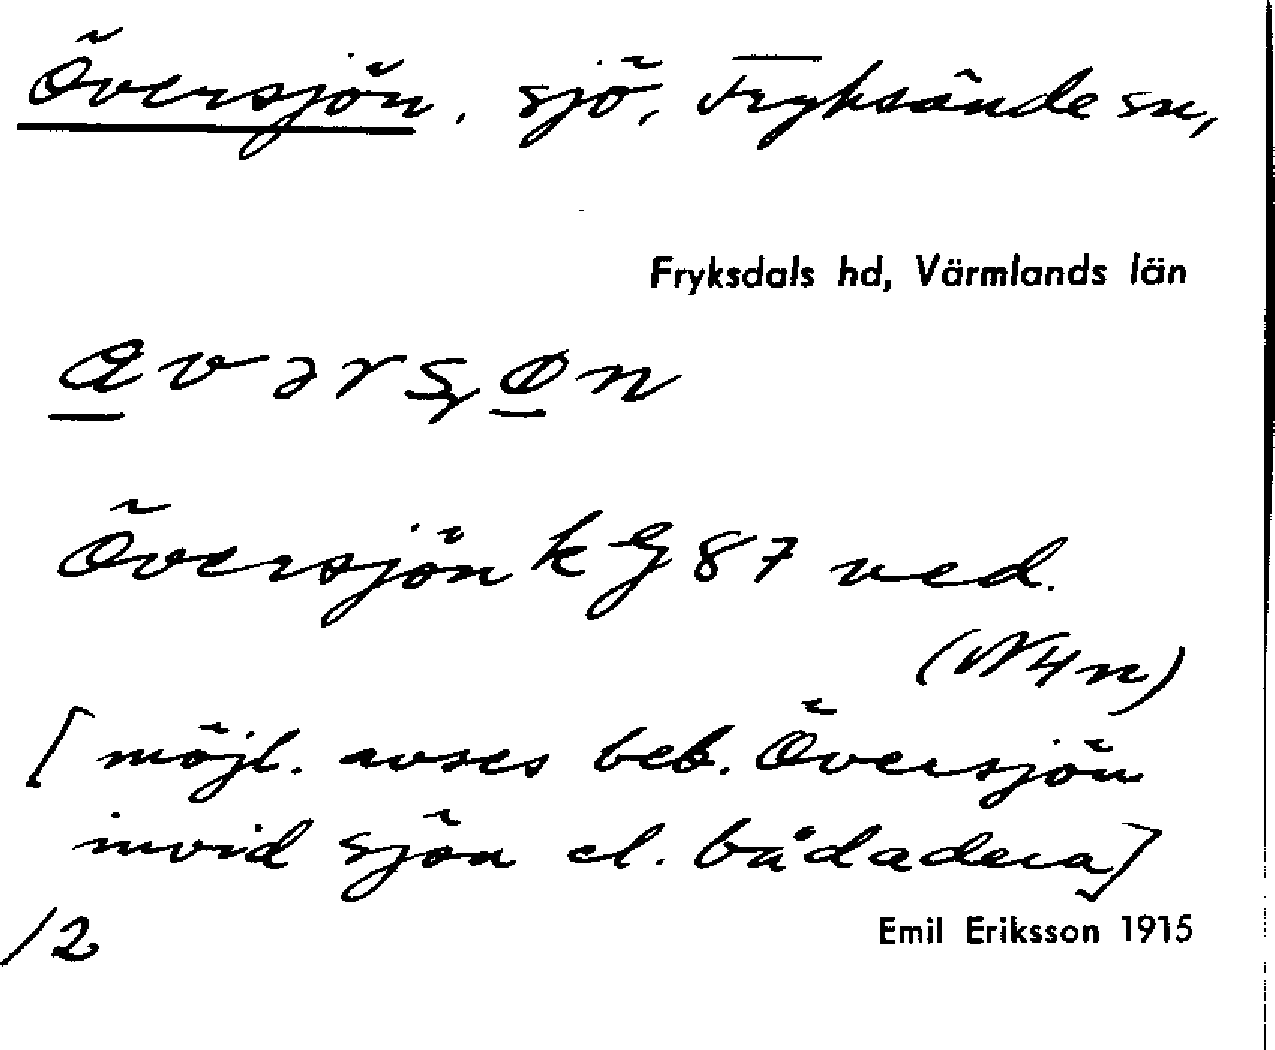 Översjön, sjö, Fryksände sn,
Fryksdals hd, Värmlands län
Översjön k G 87 ved.
(N4n)
[möjl. avses beb. Översjön
invid sjön el. bådadera]
/2
Emil Eriksson 1915